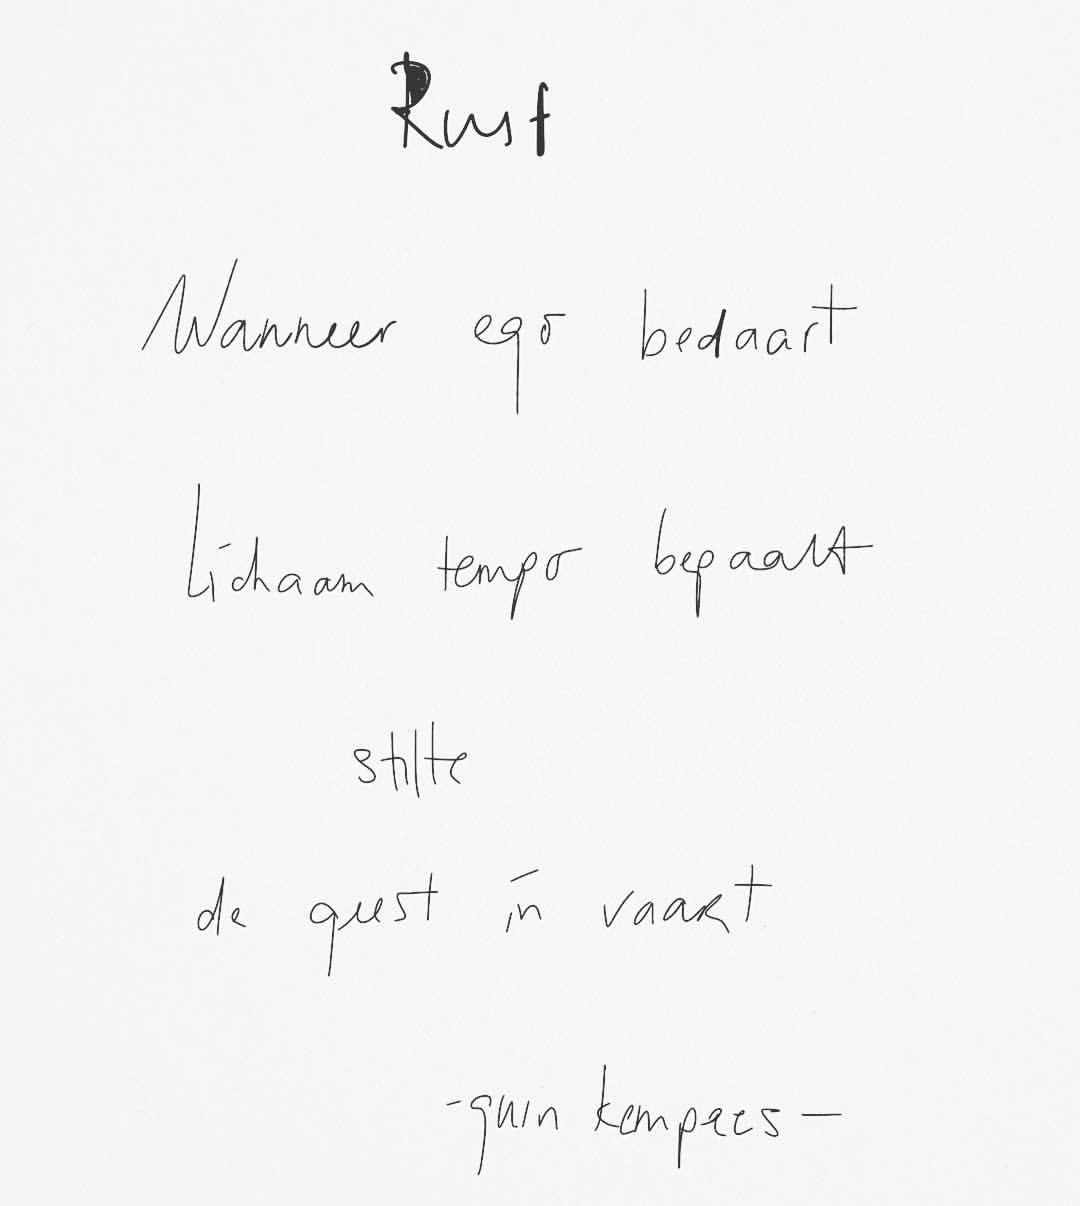 Rust
Wanneer ego bedaart
Lichaam tempo bepaalt
stilte
de geest in vaart
- quin kempees -